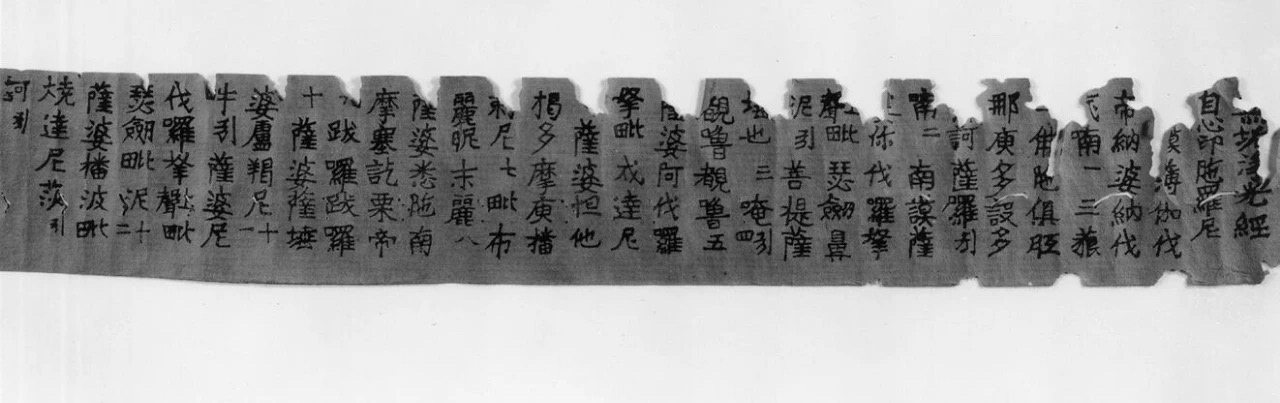 無垢淨光經
自心印陁羅尼
謨薄伽伐
帝納婆納伐
底喃一三藐
佛陁俱胝
那庾多設多
訶薩羅引
喃二南謨薩
你伐羅拏
聲毗瑟劒鼻
泥引菩提薩
埵也三唵引四
覩嚕覩嚕五
薩婆阿伐羅
拏毗戍達尼
薩婆怛他
揭多摩庾播
剌尼七毗布
麗昵末麗八
薩婆悉陁南
摩塞訖栗帝
跋羅跋羅
十薩婆薩埵
婆盧羯尼十一
牛引薩婆尼
伐羅拏聲毗
瑟劒毗泥十二
薩婆播波毗
燒達尼莎引
訶引